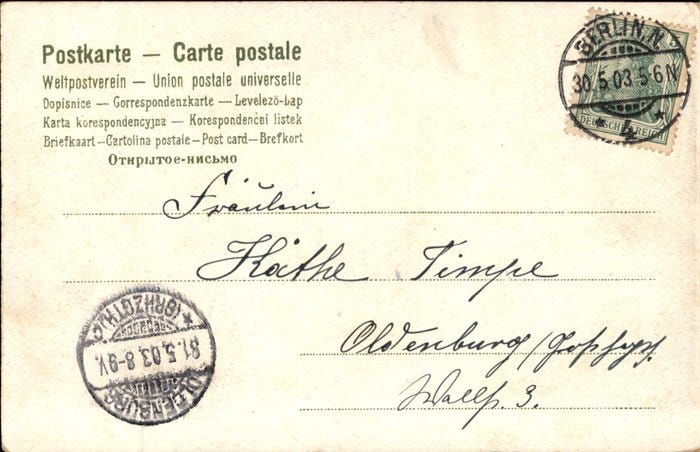 Postkarte — Carte postale
Weltpostverein — Union postale universelle
Dopisnice — Correspondenzkarte — Levelező-Lap
Karta korespondencyjna — Korespondenční listek
Briefkaart—Cartolina postale—Post card—Brefkort
Открытое-письмо
BERLIN.N.
30.5.03.5-6N
* 4 *
DEUTSCHES REICH
Fräulein
Käthe Timpe
Oldenburg
Wallst. 3.
OLDENBURG
31.5.03.8-9V.
*(GRHZGTH.)*